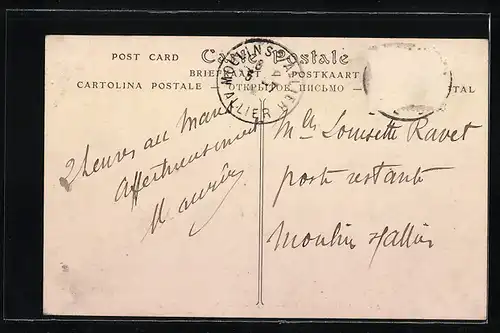 POST CARD Carte Postale
BRIEFKAART POSTKAART
CARTOLINA POSTALE - ОТКРЫТОЕ ПИСЬМО -
MOULINS ALLIER
2 heures au
Affectueusement
Maurice
Mlle Louisette Ravet
poste restante
Moulins Allier